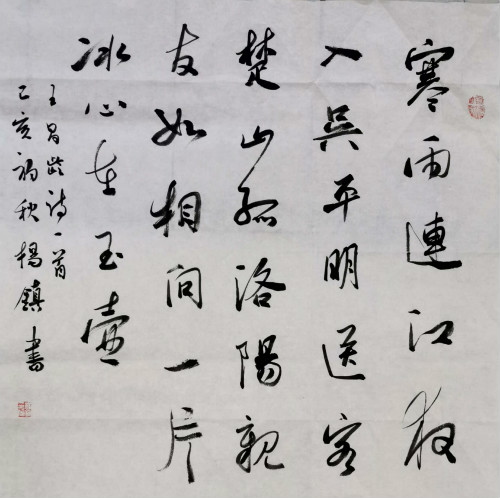 寒雨連江夜
入吳平明送客
楚山孤洛陽親
友如相问一片
冰心在玉壺
王昌龄诗一首
己亥初秋楊鎮書